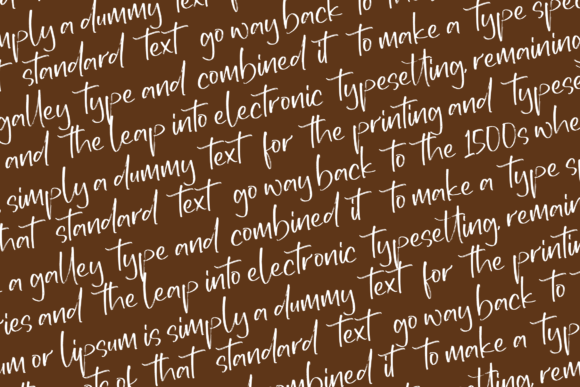 mply a dummy text
standard text go way back to
galley type and combined it to make a type spe
and the leap into electronic typesetting, remaining
simply a dummy text for the printing and typese
hat standard text go way back to the 1500s whe
a galley type and combined it to make a type sp
ries and the leap into electronic typesetting, remain
um or lipsum is simply a dummy text for the printin
that standard text go way back to
combined it to make a typ